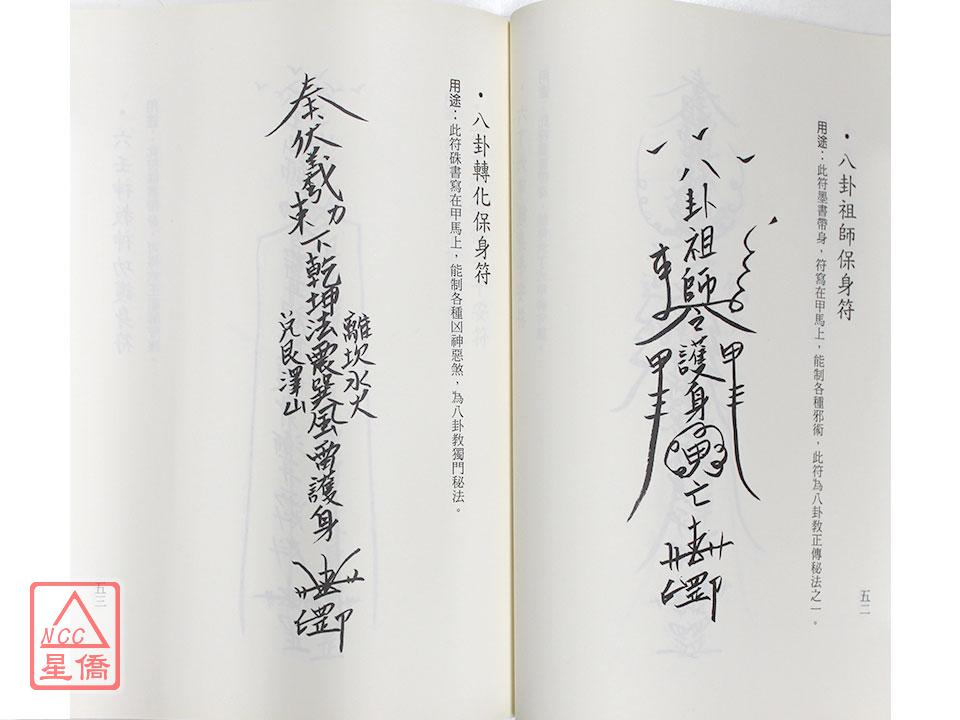 •八卦祖師保身符
用途：此符墨書帶身，符寫在甲馬上，能制各種邪術，此符為八卦教正傳秘法之一。
八卦祖師令護身
甲
甲
亡
五二
•八卦轉化保身符
用途：此符硃書寫在甲馬上，能制各種凶神惡煞，為八卦教獨門秘法。
奉伏羲
下乾坤法震巽風雷護身
離坎水火
兌艮澤山
五三
NCC
星僑